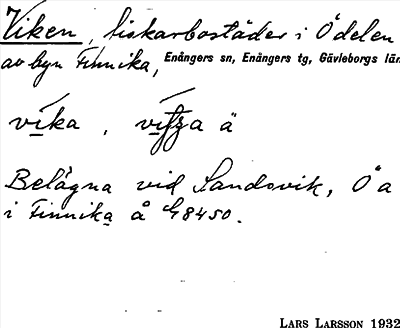 Viken, fiskarbostäder i Ådelen
av byn Finnika, Enångers sn, Enångers tg, Gävleborgs län
vika, ä
Belägna vid Sandsvik, Åa
i Finnika å G8450.
LARS LARSSON 1932